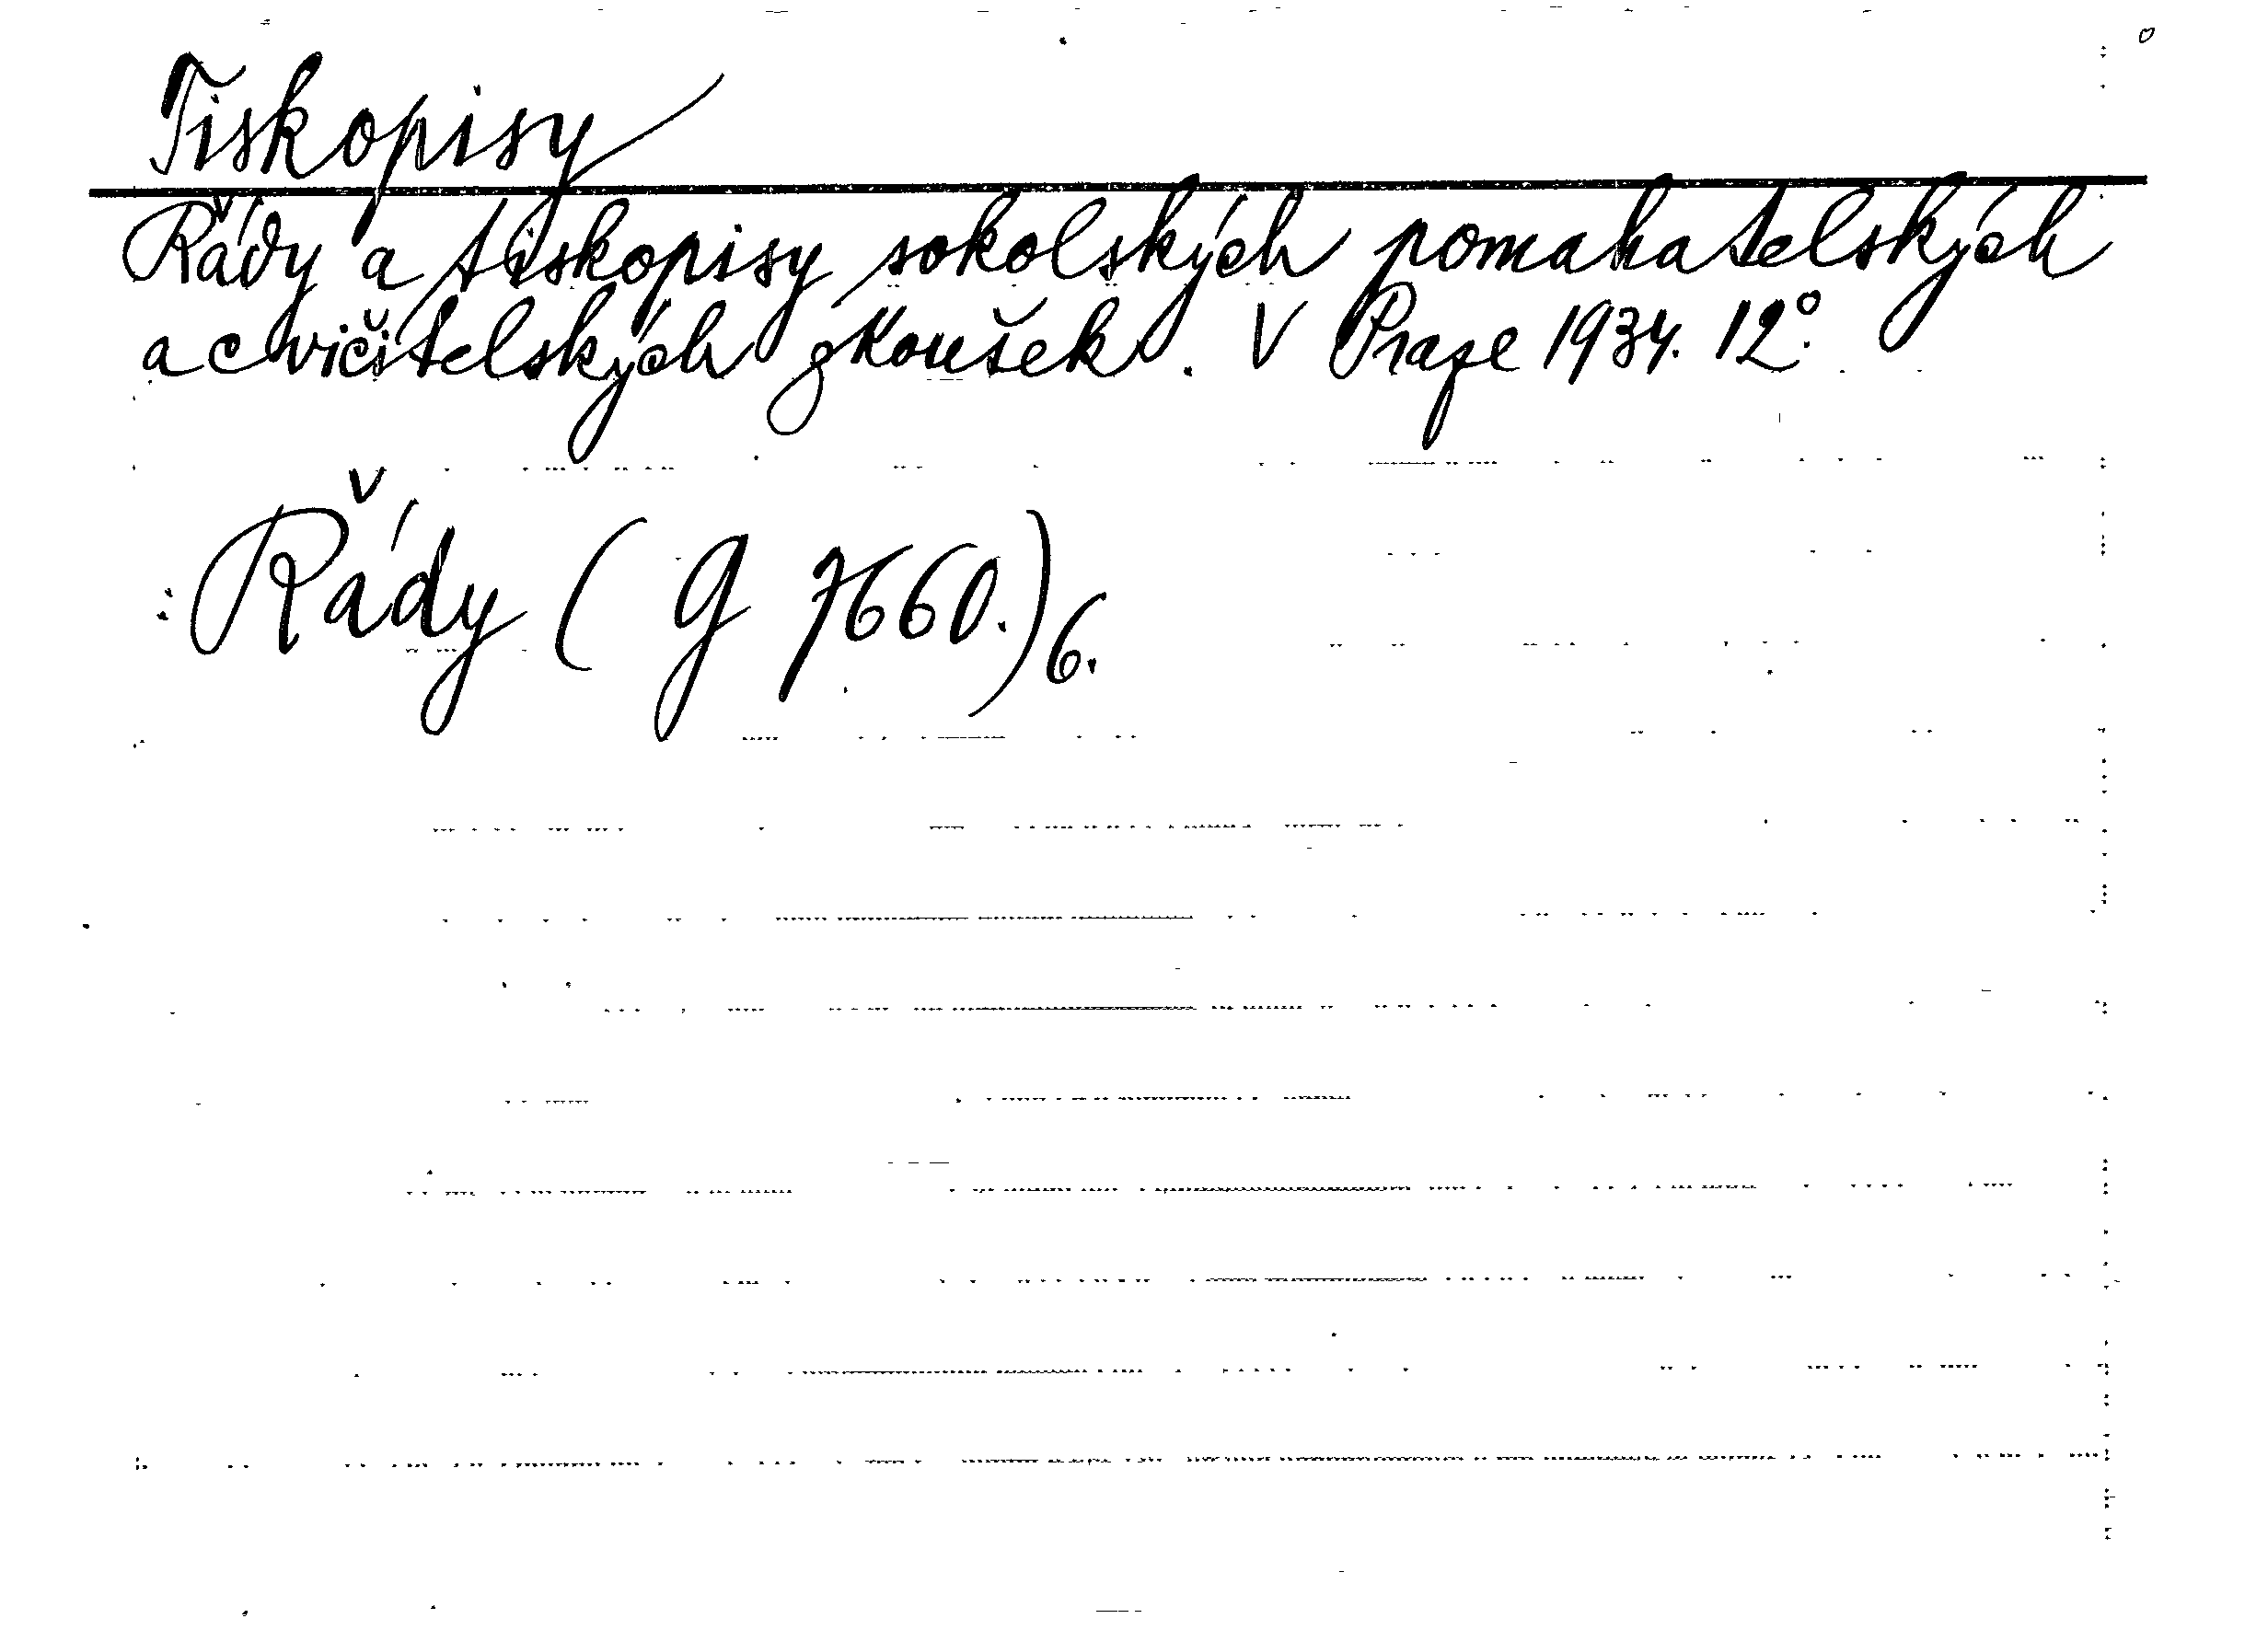 Tiskopisy
Řády a tiskopisy sokolských pomahatelských
a cvičitelských zkoušek. V Praze 1934. 12°.
: Řády (G 7660.)6.